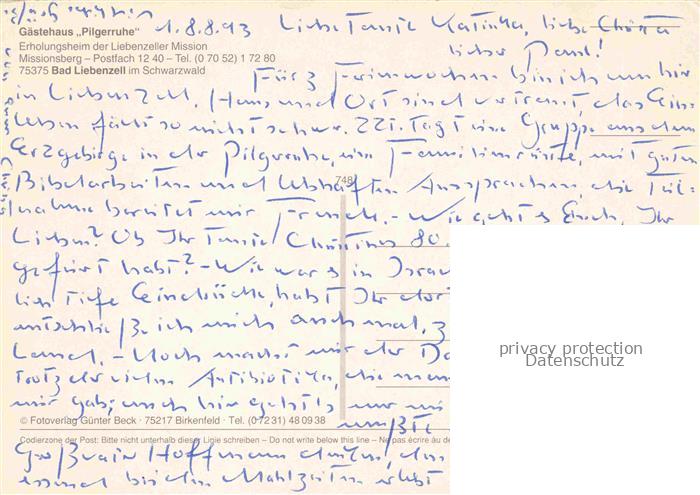 Gästehaus „Pilgerruhe"
Erholungsheim der Liebenzeller Mission
Missionsberg – Postfach 12 40 – Tel. (0 70 52) 1 72 80
75375 Bad Liebenzell im Schwarzwald
1.8.93 Liebe Tante Katinka, liebe Christa
lieber Paul!
Für 3 Ferienwochen bin ich nun hier
in Liebenzell. Haus und Ort sind vertraut, das Ein-
leben fällt so nicht schwer. Zzt. tagt eine Gruppe aus dem
Erzgebirge in der Pilgerruhe, eine Familienfreizeit, mit guten
Bibelarbeiten und lebhaften Ansprachen, die Teil-
nahme bereitet mir Freude. – Wie geht es Euch, Ihr
Lieben? Ob Ihr Tante Christines 80.
gefeiert habt? – Wie war es in Israel
tiefe Eindrücke, habt Ihr dort
entschließe ich mich auch mal,
Land. – Noch macht mir der
trotz der vielen Antibiotika, die man
mir gab; auch hier geht's nur
mußte
748
© Fotoverlag Günter Beck · 75217 Birkenfeld · Tel. (0 72 31) 48 09 38
Codierzone der Post: Bitte nicht unterhalb dieser Linie schreiben – Do not write below this line – Ne pas écrire au de
Hoffmann
bei den Mahlzeiten
privacy protection
Datenschutz